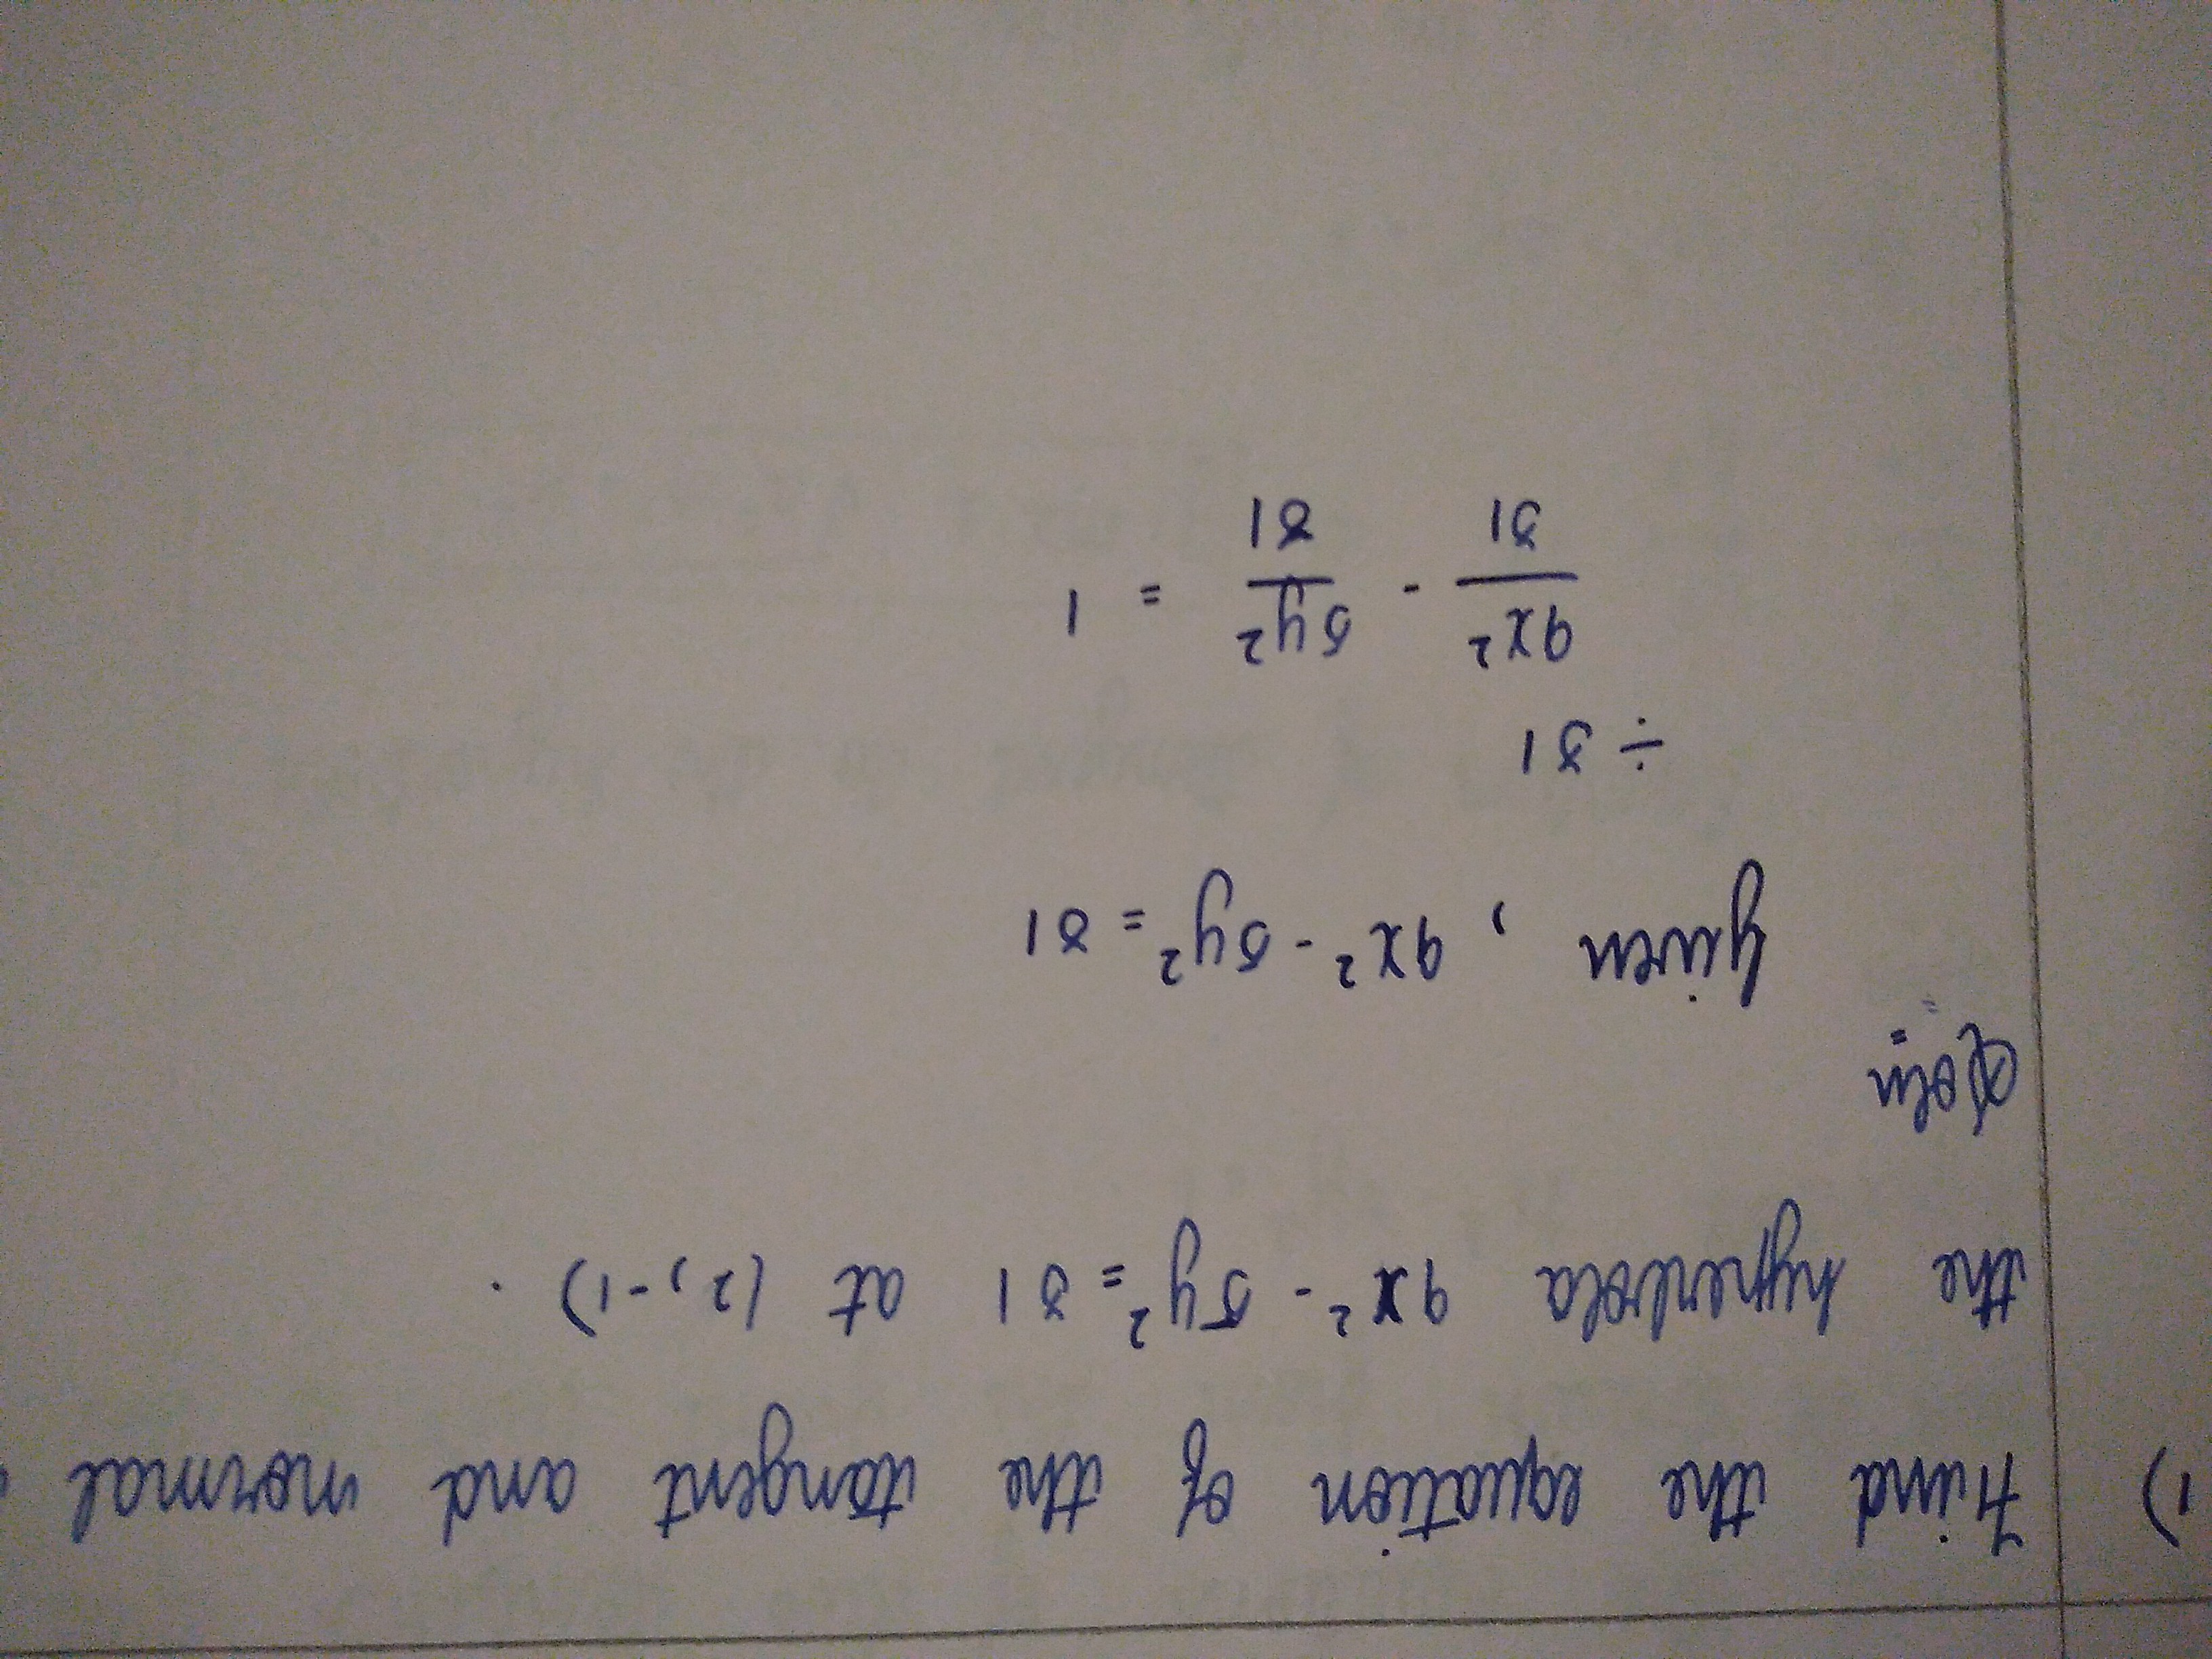 1) Find the equation of the tangent and normal
the hyperbola 9x² - 5y² = 31 at (2, -1).
Soln
given, 9x² - 5y² = 31
÷ 31
9x²/31 - 5y²/31 = 1